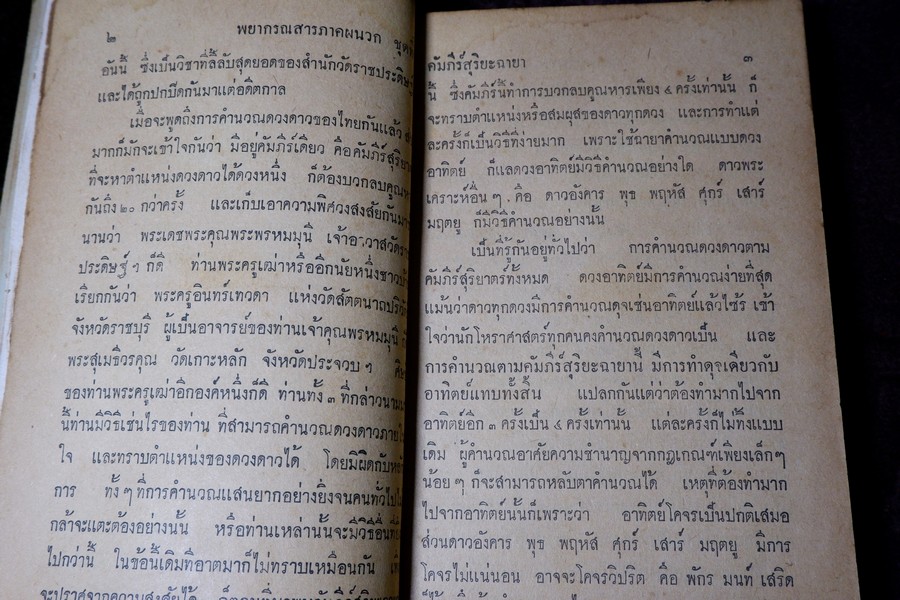 ๒ พยากรณสารภาคผนวก ชุด
อันนี้ ซึ่งเป็นวิชาที่ลี้ลับสุดยอดของสำนักวัดราชประดิษฐ
และได้ถูกปกปิดกันมาแต่อดีตกาล
เมื่อจะพูดถึงการคำนวณดวงดาวของไทยกันแล้ว
มากก็มักจะเข้าใจกันว่า มีอยู่คัมภีร์เดียว คือคัมภีร์สุริยา
ที่จะหาตำแหน่งดวงดาวได้ดวงหนึ่ง ก็ต้องบวกลบคูณ
กันถึง ๒๐ กว่าครั้ง และเก็บเอาความพิศวงสงสัยกันมา
นานว่า พระเดชพระคุณพระพรหมมุนี เจ้าอาวาสวัดรา
ประดิษฐ์ฯ ก็ดี ท่านพระครูเฒ่าหรืออีกนัยหนึ่งชาว
เรียกกันว่า พระครูอินทร์เทวดา แห่งวัดสัตตนาถ
จังหวัดราชบุรี ผู้เป็นอาจารย์ของท่านเจ้าคุณพรหมมุนี
พระสุเมธีวรคุณ วัดเกาะหลัก จังหวัดประจวบฯ
ของท่านพระครูเฒ่าอีกองค์หนึ่งก็ดี ท่านทั้ง ๓ ที่กล่าวนาม
นี้ท่านมีวิธีเช่นไรของท่าน ที่สามารถคำนวณดวงดาวภาย
ใจ และทราบตำแหน่งของดวงดาวได้ โดยมิผิดกับ
การ ทั้งๆ ที่การคำนวณแสนยากอย่างยิ่งจนคนทั่วไป
กล้าจะแตะต้องอย่างนั้น หรือท่านเหล่านั้นจะมีวิธีอื่น
ไปกว่านี้ ในข้อนี้เดิมทีอาตมาก็ไม่ทราบเหมือนกัน
จะปราศจากความสงสัยได้
คัมภีร์สุริยะฉายา ๓
นี้ ซึ่งคัมภีร์นี้ทำการบวกลบคูณหารเพียง ๔ ครั้งเท่านั้น ก็
จะทราบตำแหน่งหรือสมผุสของดาวทุกดวง และการทำแต่
ละครั้งก็เป็นวิธีที่ง่ายมาก เพราะใช้ฉายาคำนวณแบบดวง
อาทิตย์ ก็แลดวงอาทิตย์มีวิธีคำนวณอย่างใด ดาวพระ
เคราะห์อื่นๆ คือ ดาวอังคาร พุธ พฤหัส ศุกร์ เสาร์
มฤตยู ก็มีวิธีคำนวณอย่างนั้น
เป็นที่รู้กันอยู่ทั่วไปว่า การคำนวณดวงดาวตาม
คัมภีร์สุริยาตร์ทั้งหมด ดวงอาทิตย์มีการคำนวณง่ายที่สุด
แม้นว่าดาวทุกดวงมีการคำนวณดุจเช่นอาทิตย์แล้วไซร้ เข้า
ใจว่านักโหราศาสตร์ทุกคนคงคำนวณดวงดาวเป็น และ
การคำนวณตามคัมภีร์สุริยะฉายานี้ มีการทำดุจเดียวกับ
อาทิตย์แทบทั้งสิ้น แปลกกันแต่ว่าต้องทำมากไปจาก
อาทิตย์อีก ๓ ครั้งเป็น ๔ ครั้งเท่านั้น แต่ละครั้งก็ไม่ทิ้งแบบ
เดิม ผู้คำนวณอาศัยความชำนาญจากกฎเกณฑ์เพียงเล็กๆ
น้อยๆ ก็จะสามารถหลับตาคำนวณได้ เหตุที่ต้องทำมาก
ไปจากอาทิตย์นั้นก็เพราะว่า อาทิตย์โคจรเป็นปกติเสมอ
ส่วนดาวอังคาร พุธ พฤหัส ศุกร์ เสาร์ มฤตยู มีการ
โคจรไม่แน่นอน อาจจะโคจรวิปริต คือ พักร มนท์ เสริด